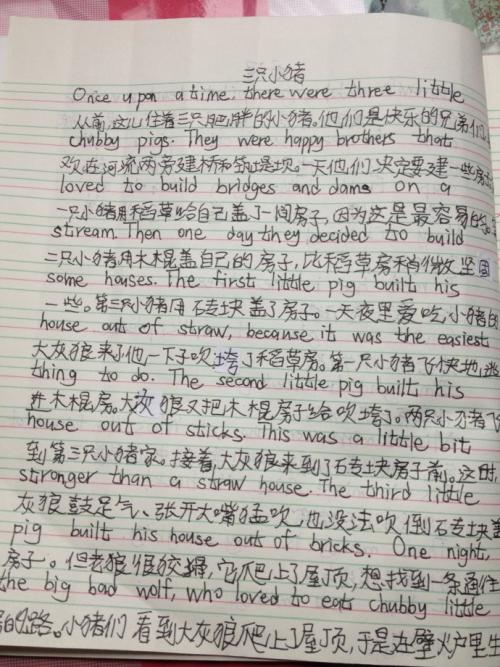 三只小猪
Once upon a time, there were three little
从前,这儿住着三只肥胖的小猪。他们是快乐的兄弟们,
chubby pigs. They were happy brothers that
欢在河流两旁建桥和筑堤坝。一天他们决定要建一些房
loved to build bridges and dams on a
一只小猪用稻草给自己盖了一间房子,因为这是最容易的。
stream. Then one day they decided to build
二只小猪用木棍盖自己的房子,比稻草房稍微坚固
some houses. The first little pig built his
一些。第三只小猪用石专块盖了房子。一天夜里爱吃小猪的
house out of straw, because it was the easiest
大灰狼来了他一下子吹垮了稻草房。第一只小猪飞快地逃
thing to do. The second little pig built his
进木棍房。大灰狼又把木棍房子给吹垮了。两只小猪飞
house out of sticks. This was a little bit
到第三只小猪家。接着,大灰狼来到了石专块房子前。这时,
stronger than a straw house. The third little
灰狼鼓足气、张开大嘴猛吹,也没法吹倒石专块盖
pig built his house out of bricks. One night,
房子。但老狼很狡猾,它爬上了屋顶,想找到一条通往
the big bad wolf, who loved to eat chubby little
的出路。小猪们看到大灰狼爬上了屋顶,于是在壁火户里生